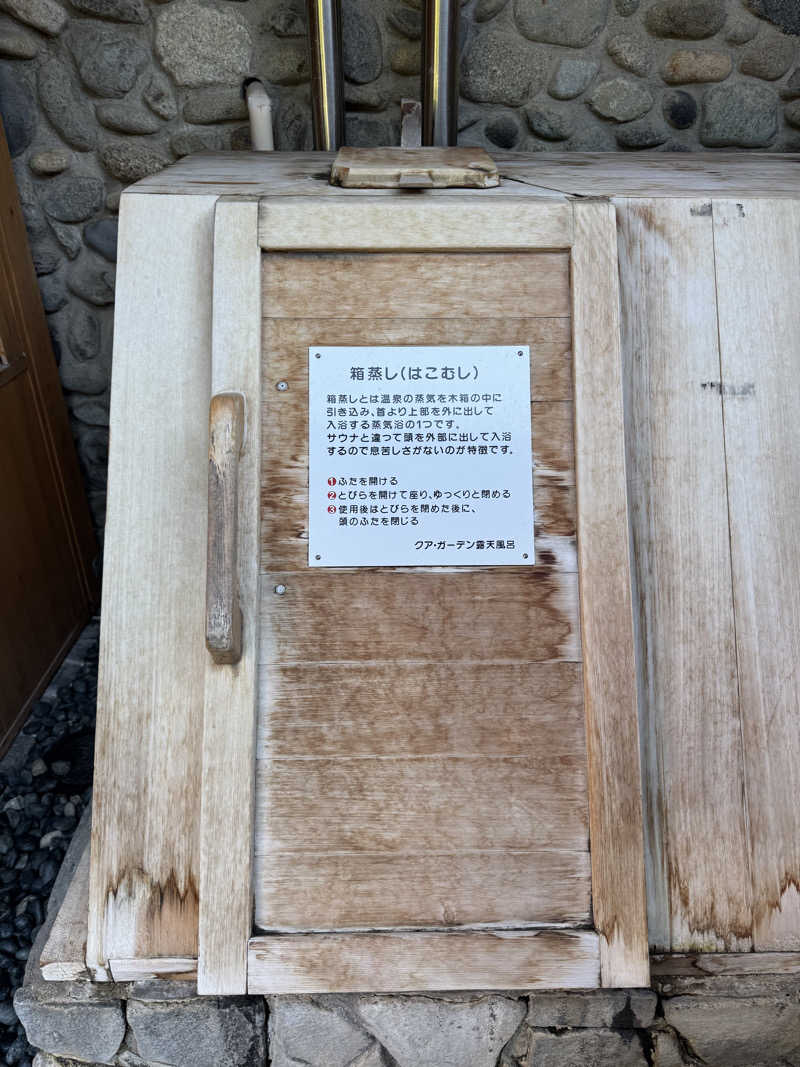 箱蒸し(はこむし)
箱蒸しとは温泉の蒸気を木箱の中に
引き込み、首より上部を外に出して
入浴する蒸気浴の1つです。
サウナと違って頭を外部に出して入浴
するので息苦しさがないのが特徴です。
1ふたを開ける
2とびらを開けて座り、ゆっくりと閉める
3使用後はとびらを閉めた後に、
頭のふたを閉じる
クア・ガーデン露天風呂